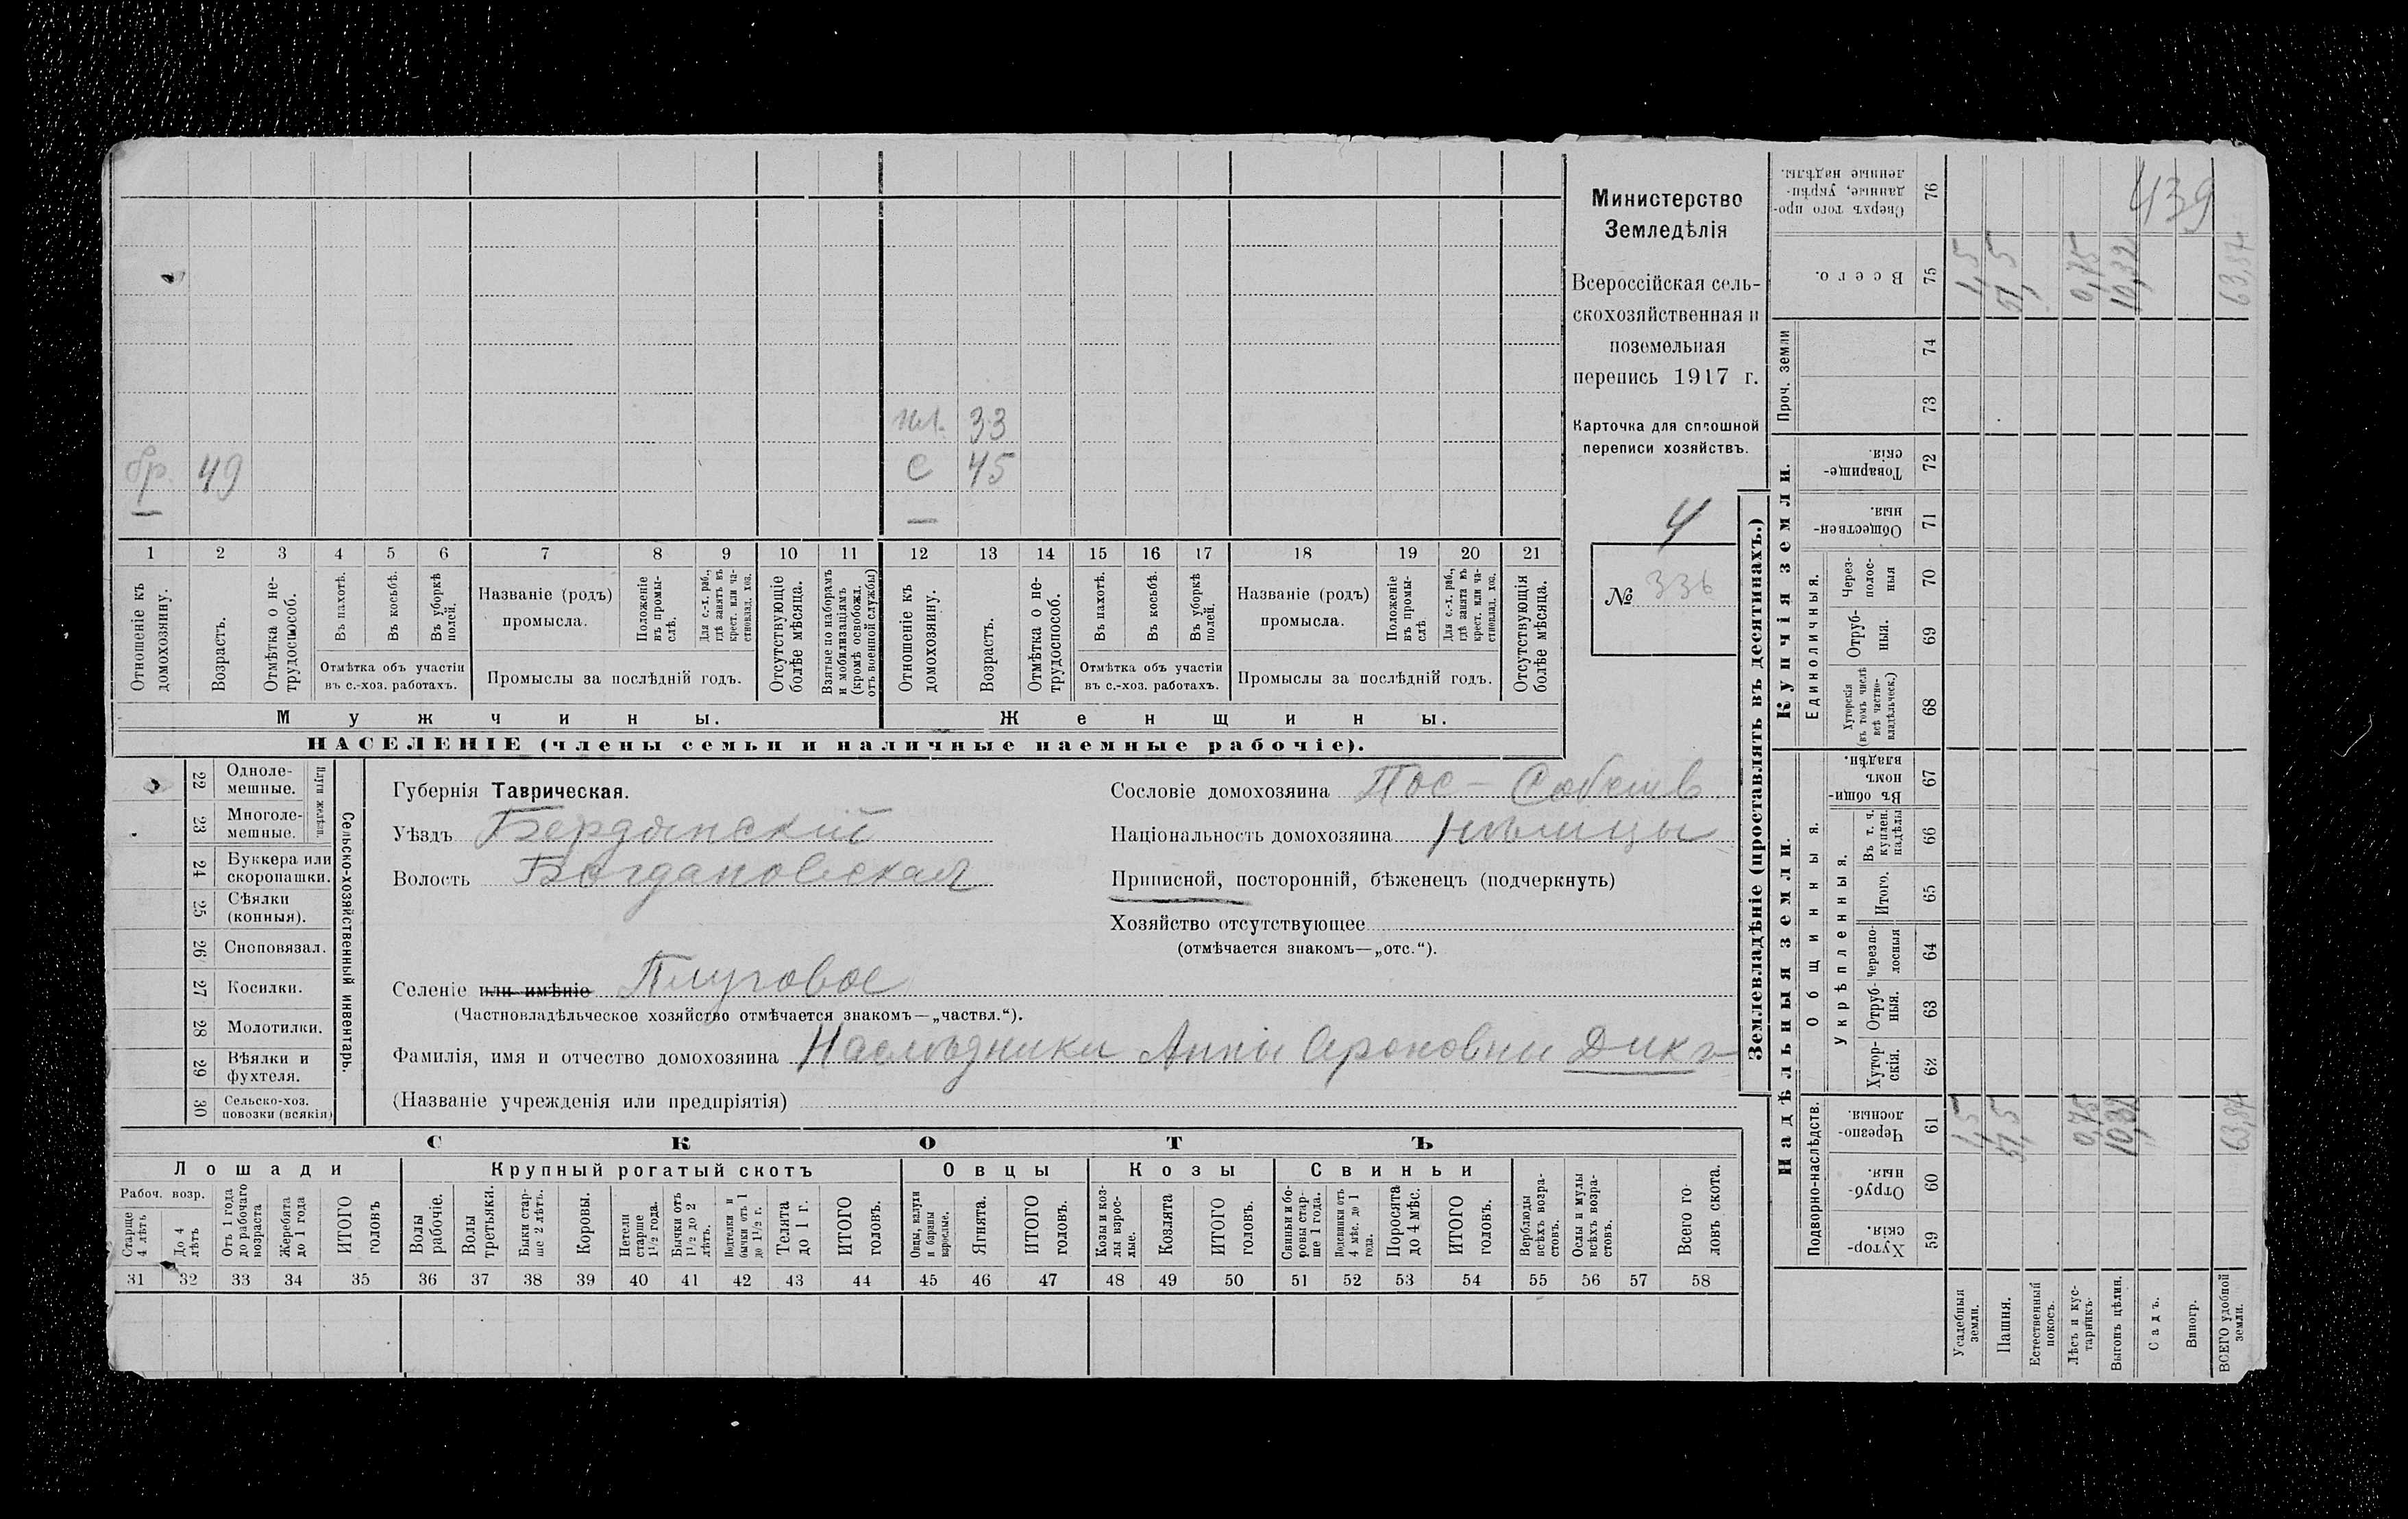 бр. 49
пл. 33
с 45
— —
1 2 3 4 5 6 7 8 9 10 11 12 13 14 15 16 17 18 19 20 21
Отношеніе къ домохозяину.
Возрастъ.
Отмѣтка о не-
трудоспособ.
Въ пахотѣ.
Въ косьбѣ.
Въ уборкѣ полей.
Отмѣтка объ участіи
въ с.-хоз. работахъ.
Названіе (родъ)
промысла.
Положеніе въ промы-
слѣ.
Для с.-х. раб., гдѣ занятъ въ крест. или ча-
стновлад. хоз.
Промыслы за послѣдній годъ.
Отсутствующіе болѣе мѣсяца.
Взятые по наборамъ и мобилизаціямъ (кромѣ освобожд. отъ военной службы)
Отношеніе къ домохозяину.
Возрастъ.
Отмѣтка о не-
трудоспособ.
Въ пахотѣ.
Въ косьбѣ.
Въ уборкѣ полей.
Отмѣтка объ участіи
въ с.-хоз. работахъ.
Названіе (родъ)
промысла.
Положеніе въ промы-
слѣ.
Для с.-х. раб., гдѣ занята въ крест. или ча-
стновлад. хоз.
Промыслы за послѣдній годъ.
Отсутствующія болѣе мѣсяца.
Мужчины. Женщины.
НАСЕЛЕНІЕ (члены семьи и наличные наемные рабочіе).
Министерство
Земледѣлія
Всероссійская сель-
скохозяйственная и
поземельная
перепись 1917 г.
Карточка для сплошной
переписи хозяйствъ.
4
№ 336
22 Одноле-
мешные.
23 Многоле-
мешные.
Плуги желѣзн.
24 Буккера или
скоропашки.
25 Сѣялки
(конныя).
26 Сноповязал.
27 Косилки.
28 Молотилки.
29 Вѣялки и
фухтеля.
30 Сельско-хоз.
повозки (всякія)
Сельско-хозяйственный инвентарь.
Губернія Таврическая.
Уѣздъ Бердянскій
Волость Богдановская
Сословіе домохозяина Пос - Собств.
Національность домохозяина Нѣмцы
Приписной, посторонній, бѣженецъ (подчеркнуть)
Хозяйство отсутствующее
(отмѣчается знакомъ—„отс.“).
Селеніе или имѣніе Плуговое
(Частновладѣльческое хозяйство отмѣчается знакомъ—„частвл.“).
Фамилія, имя и отчество домохозяина Наслѣдники Анны Ароновны Дикъ
(Названіе учрежденія или предпріятія)
СКОТЪ
Лошади Крупный рогатый скотъ Овцы Козы Свиньи
Рабоч. возр.
Старше 4 лѣтъ
До 4 лѣтъ
Отъ 1 года до рабочаго возраста
Жеребята до 1 года
ИТОГО головъ
Волы рабочіе.
Волы третьяки.
Быки стар-
ше 2 лѣтъ.
Коровы.
Нетели старше 1½ года.
Бычки отъ 1½ до 2 лѣтъ.
Подтелки и бычки отъ 1 до 1½ г.
Телята до 1 г.
ИТОГО головъ.
Овцы, валухи и бараны взрослые.
Ягнята.
ИТОГО головъ.
Козы и коз-
лы взрос-
лые.
Козлята
ИТОГО головъ.
Свиньи и бо-
ровы стар-
ше 1 года.
Подсвинки отъ 4 мѣс. до 1 года.
Поросята до 4 мѣс.
ИТОГО головъ.
Верблюды всѣхъ возра-
стовъ.
Ослы и мулы всѣхъ возра-
стовъ.
Всего го-
ловъ скота.
31 32 33 34 35 36 37 38 39 40 41 42 43 44 45 46 47 48 49 50 51 52 53 54 55 56 57 58
Землевладѣніе (проставлять въ десятинахъ.)
Надѣльныя земли. Купчія земли.
Проч. земли
Подворно-наслѣдств.
Общинныя.
Укрѣпленныя.
Единоличныя.
Хутор-
скія. 59
Отруб-
ныя. 60
Черезпо-
лосныя. 61
Хутор-
скія. 62
Отруб-
ныя. 63
Черезпо-
лосныя 64
Итого. 65
Въ т. ч. куплен. надѣлы 66
Въ общи-
номъ владѣн. 67
Хуторскія (въ томъ числѣ всѣ частно-
владѣльческ.) 68
Отруб-
ныя. 69
Через-
полос-
ныя 70
Обществен-
ныя. 71
Товарище-
скія. 72
73
74
Всего. 75
Сверхъ того про-
данные, укрѣп-
ленные надѣлы. 76
439
Усадебныя земли. 1,5 1,5
Пашня. 51,5 51,5
Естественный покосъ.
Лѣсъ и кус-
тарникъ. 0,75 0,75
Выгонъ цѣлин. 10,32
Садъ.
Виногр.
ВСЕГО удобной земли.